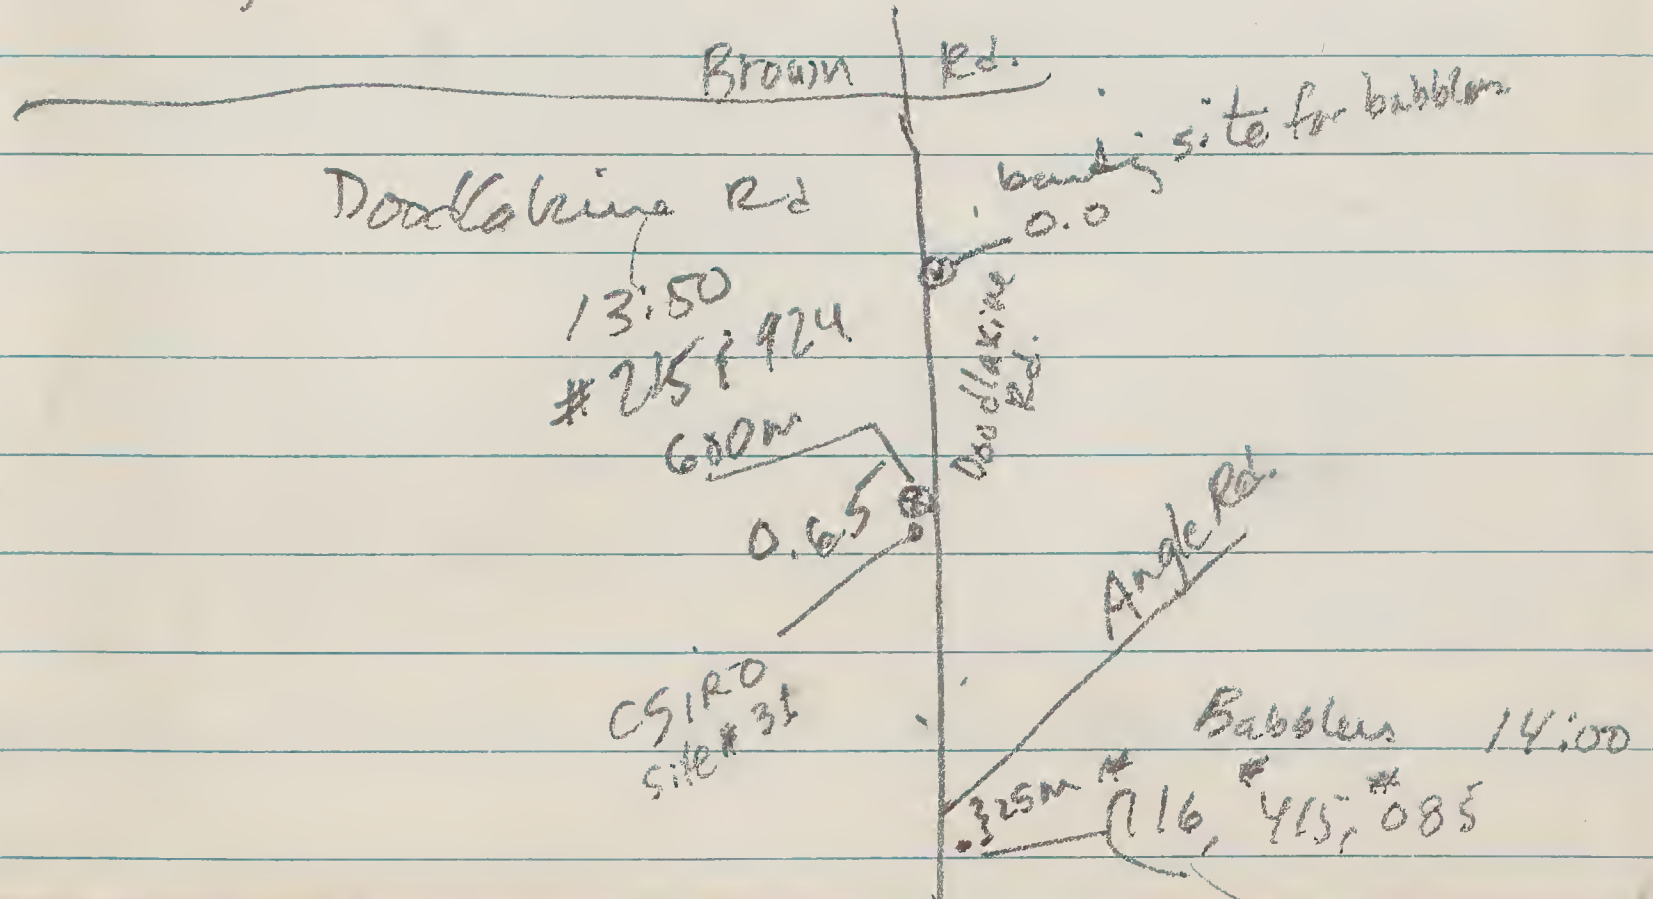 Brown Rd.
banding site for babblers
0.0
Doodlakine Rd
13:50
# 215 & 924
600m
0.65
Doodlakine Rd.
Angle Rd.
CSIRO
site # 31
Babblers 14:00
25m # 716, # 415, # 085